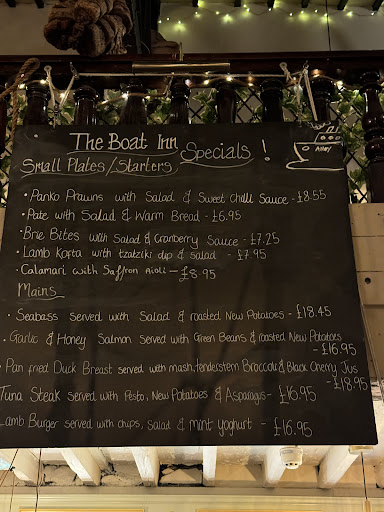 The Boat Inn Specials !
Small Plates/Starters
• Panko Prawns with Salad & Sweet Chilli Sauce - £8.55
• Pate with Salad & Warm Bread - £6.95
• Brie Bites with Salad & Cranberry Sauce - £7.25
• Lamb Kofta with tzatziki dip & salad - £7.95
• Calamari with Saffron Aioli — £8.95
Mains
• Seabass served with Salad & roasted New Potatoes - £18.45
• Garlic & Honey Salmon served with Green Beans & roasted New Potatoes
- £16.95
• Pan fried Duck Breast served with mash, tenderstem Broccoli & Black Cherry Jus
- £18.95
Tuna Steak served with Pesto, New Potatoes & Asparagus - £16.95
Lamb Burger served with chips, salad & mint yoghurt - £16.95